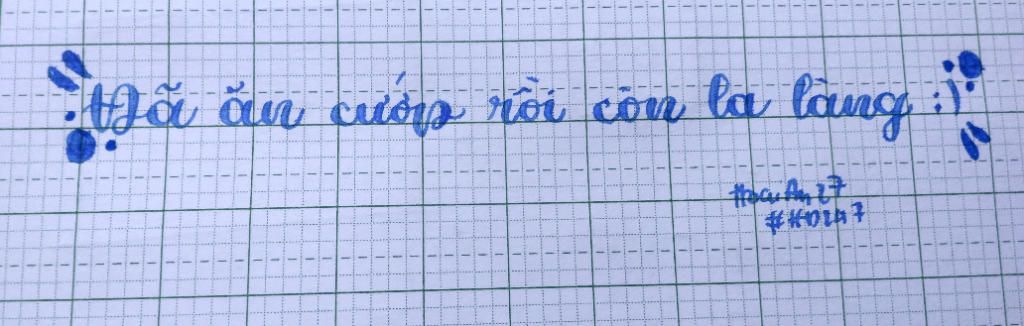 Đã ăn cướp rồi còn la làng :)
HoaiAn27
#HD247